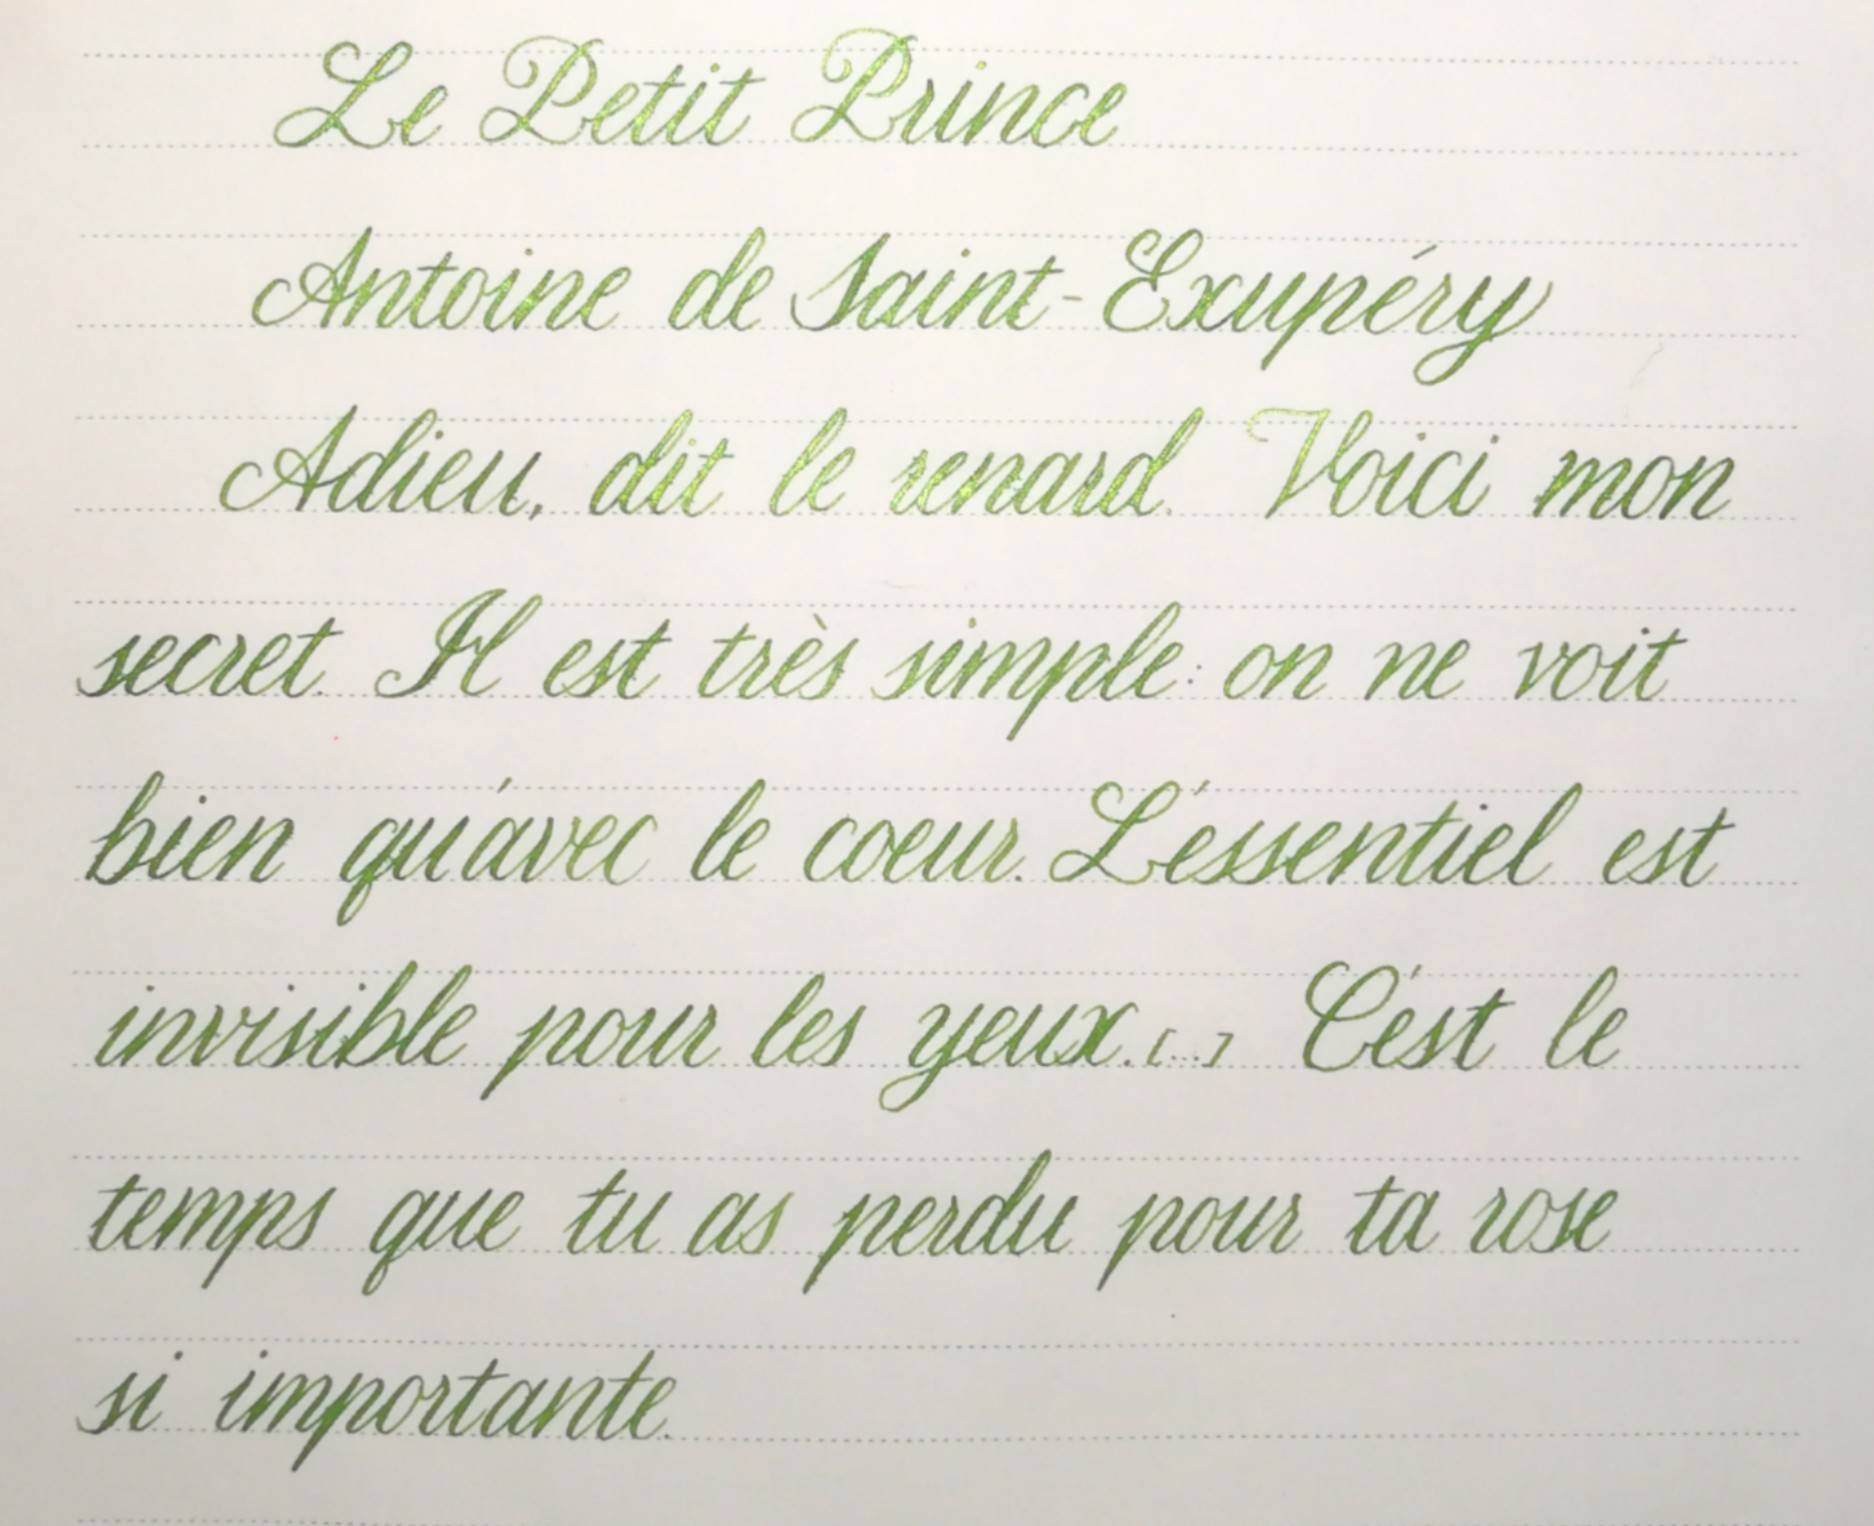 Le Petit Prince
Antoine de Saint-Exupéry
Adieu, dit le renard. Voici mon
secret. Il est très simple: on ne voit
bien qu'avec le coeur. L'essentiel est
invisible pour les yeux. [...] C'est le
temps que tu as perdu pour ta rose
si importante.